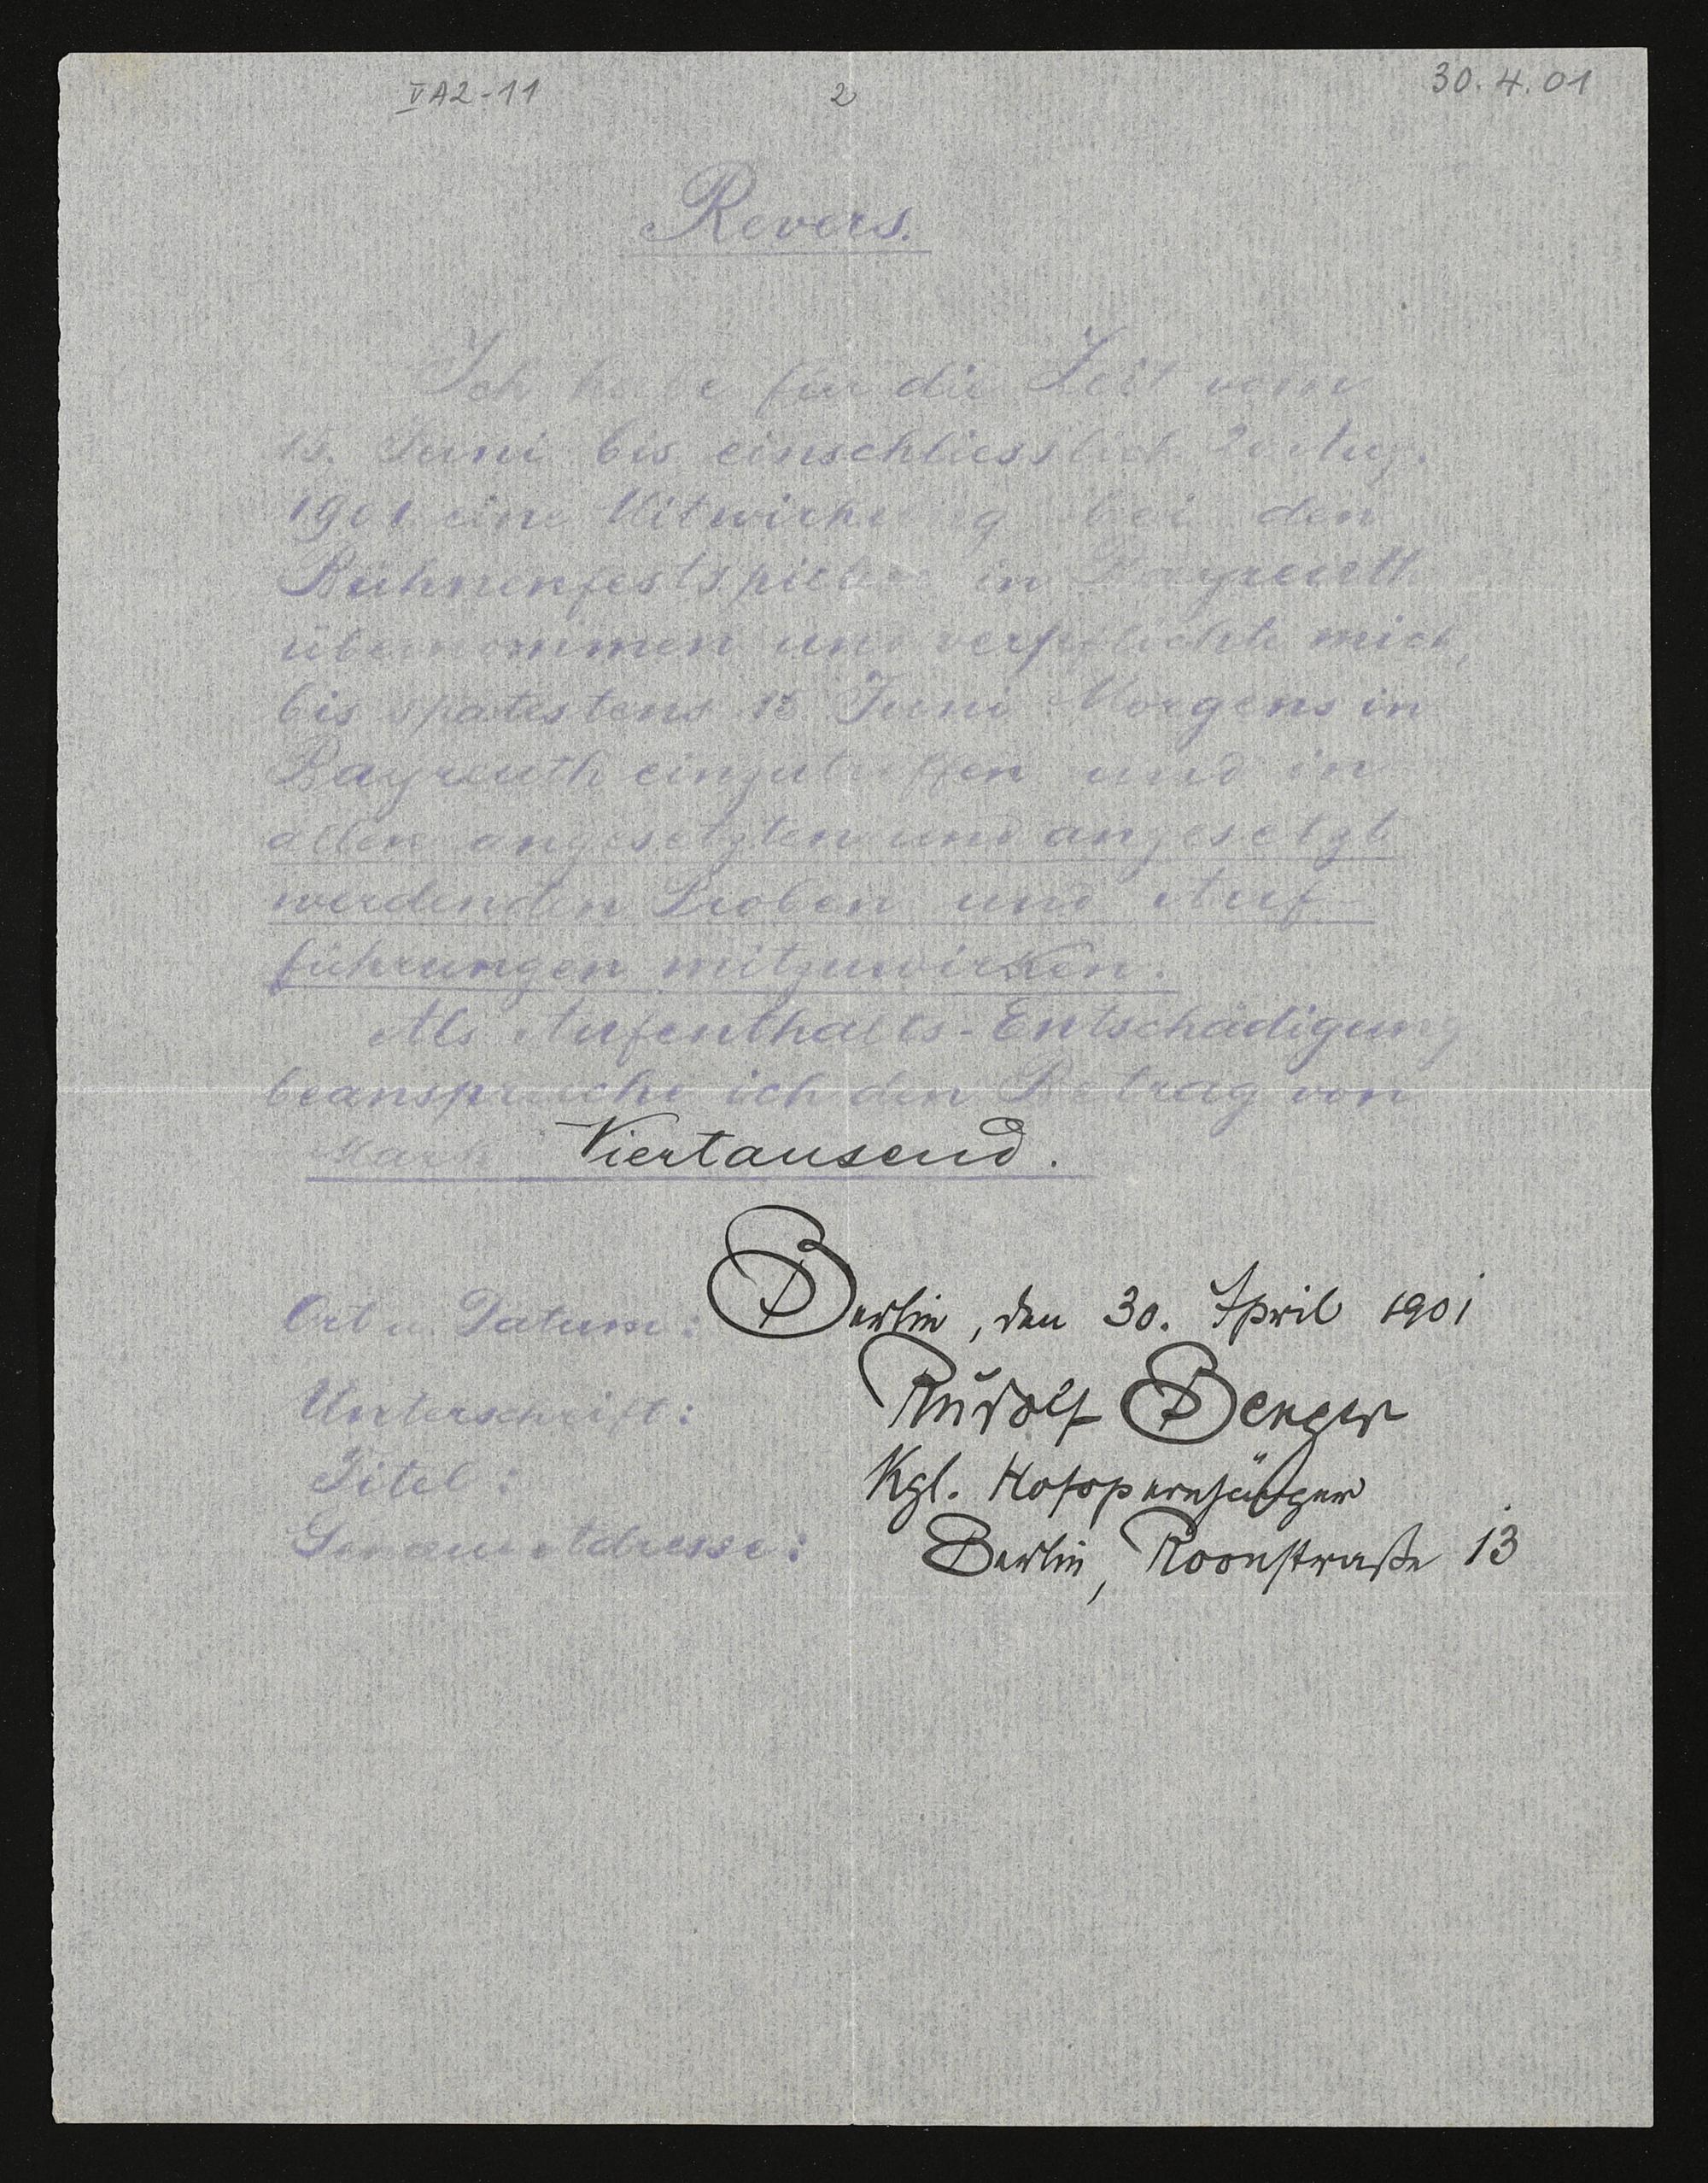 V A2-11 2 30.4.01
Revers.
Ich habe für die Zeit vom
15. Juni bis einschliesslich 20 Aug.
1901 eine Mitwirkung bei den
Bühnenfestspielen in Bayreuth
übernommen und verpflichte mich,
bis spätestens 15 Juni Morgens in
Bayreuth einzutreffen und in
allen angesetzten und angesetzt
werdenden Proben und Auf-
führungen mitzuwirken.
Als Aufenthalts-Entschädigung
beanspruche ich den Betrag von
Mark Viertausend.
Ort u. Datum: Berlin, den 30. April 1901
Unterschrift: Rudolf Berger
Titel: Kgl. Hofopernsänger
Genaue Adresse: Berlin, Roonstraße 13